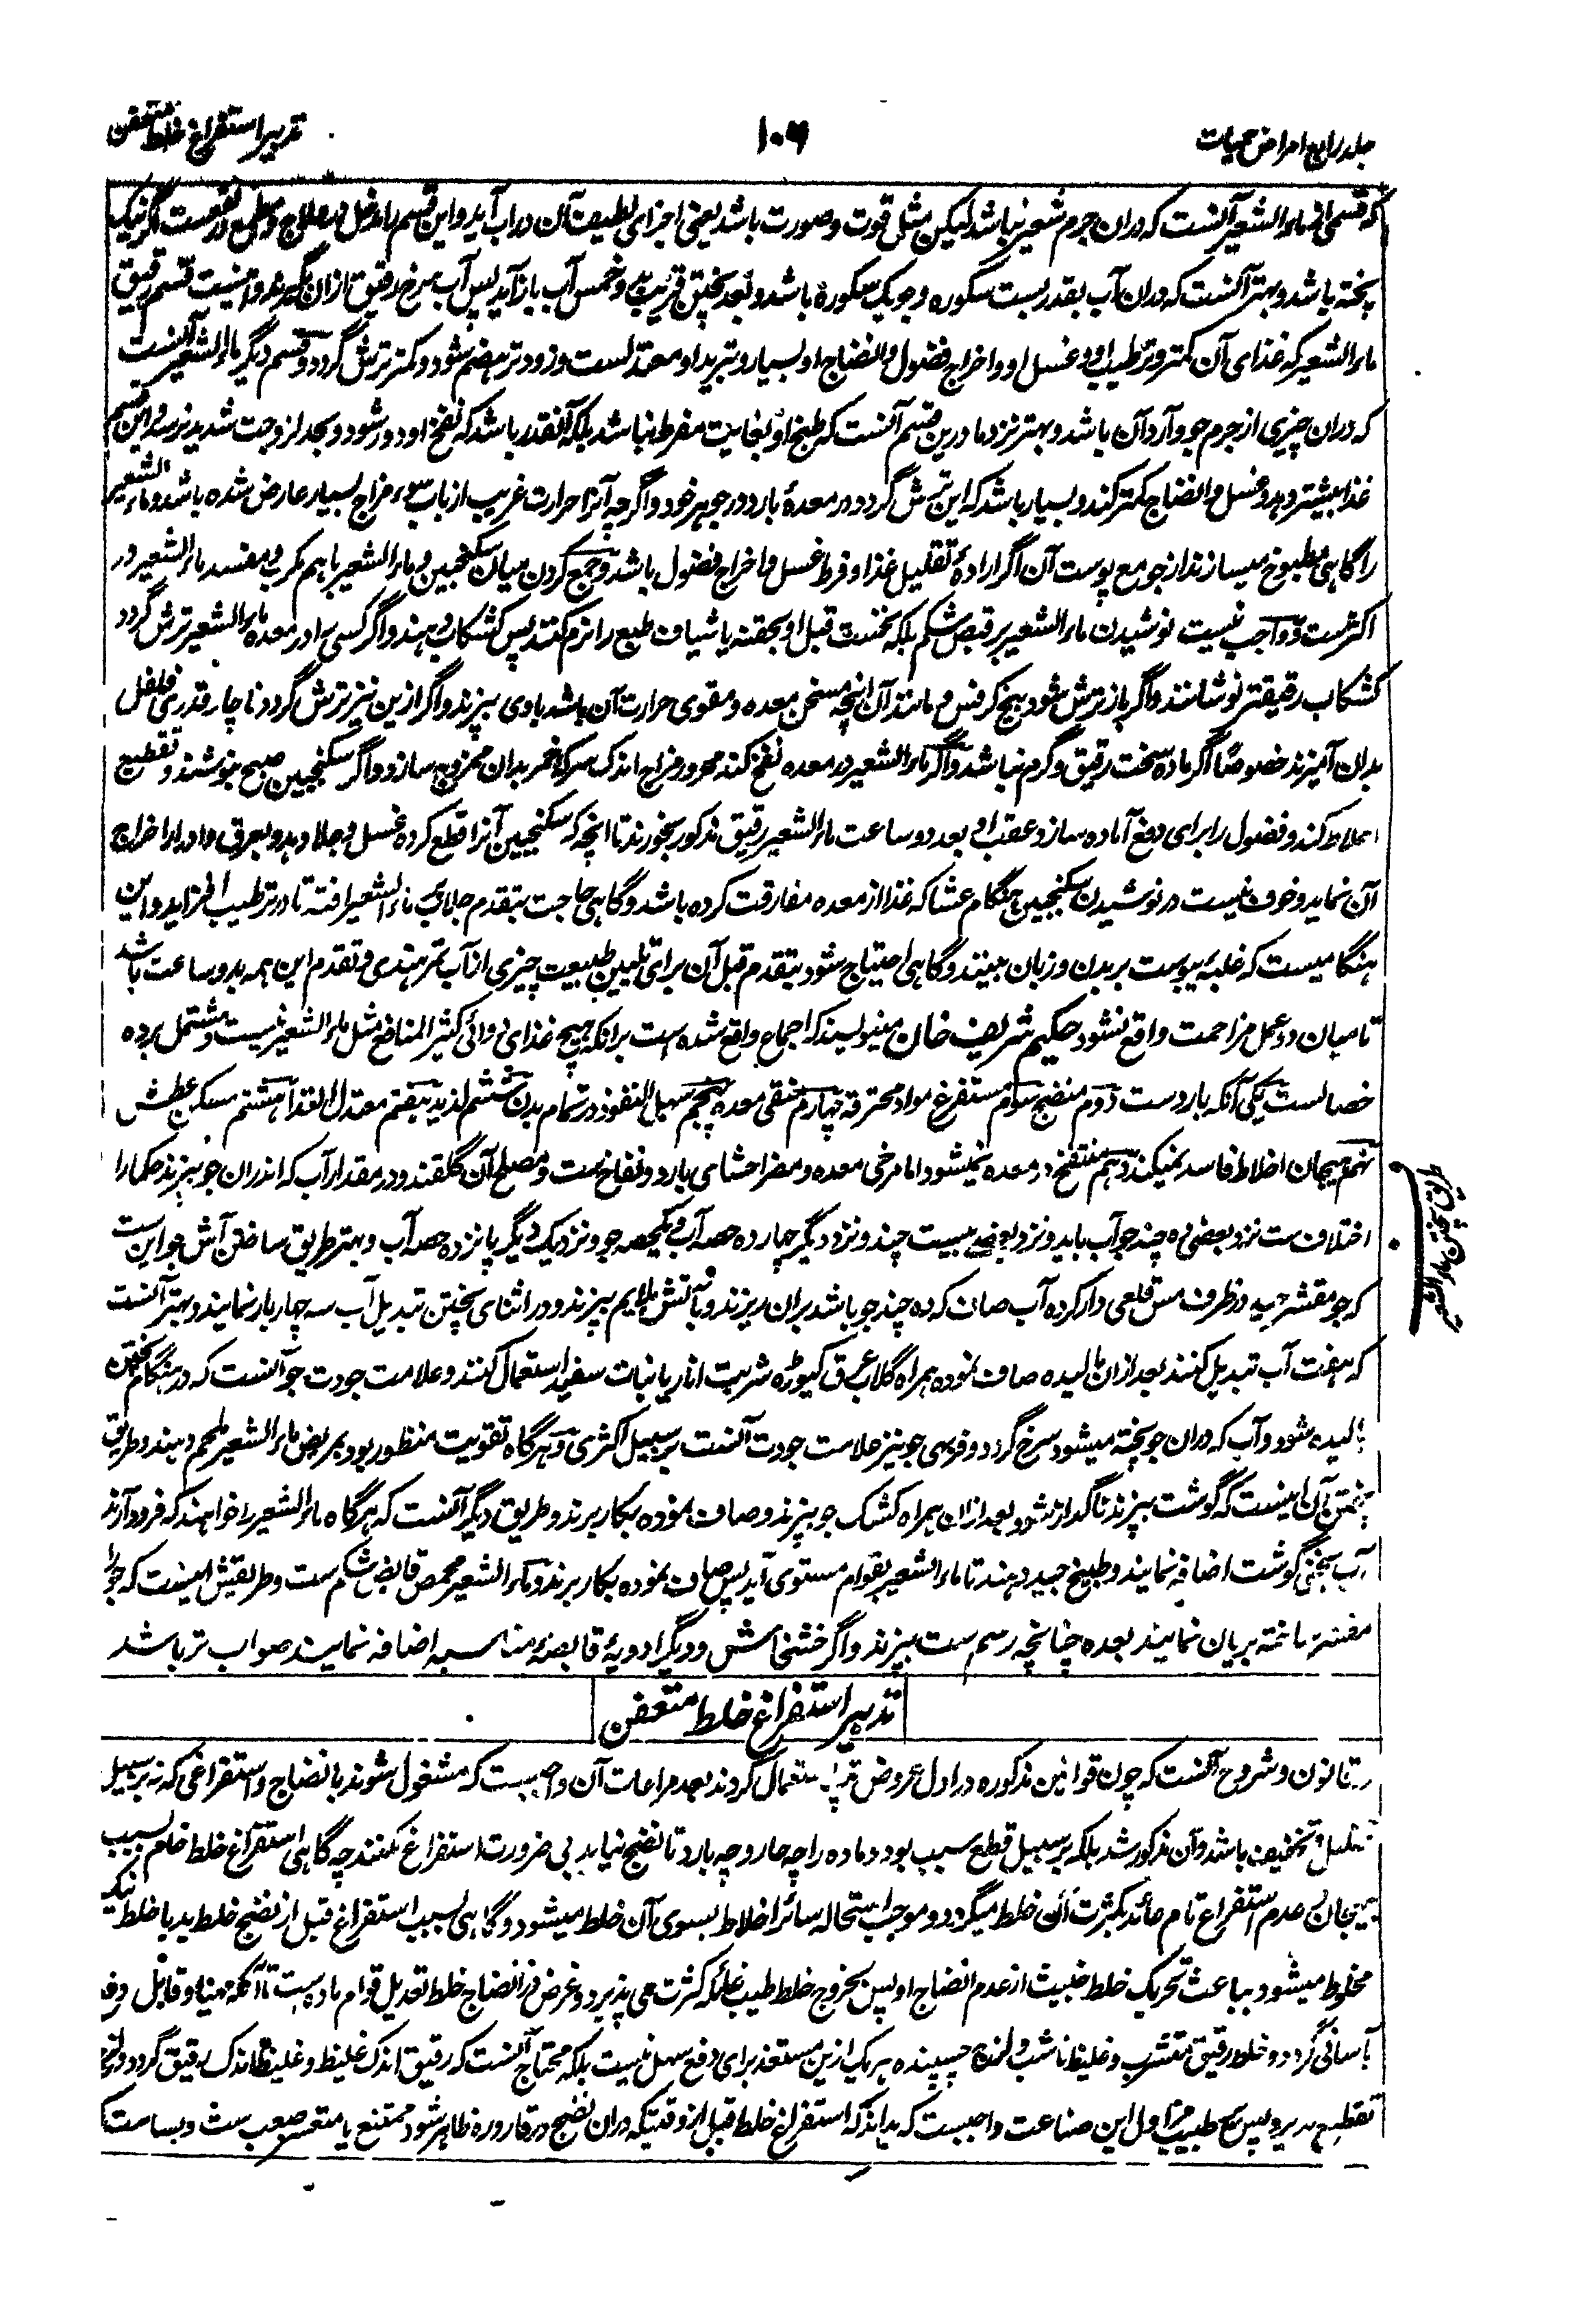 جلد رابع امراض حمیات
۱۰۶
تدبیر استفراغ خلط متعفن
که قسمی از ماء الشعیر آنست که دران جرم شعیر نباشد لیکن مثل قوت و صورت باشد یعنی اجزای لطیف آن در آب آید و این قسم را دخل در علاج و طمع در نفع ست اگر نیک
پخته باشد و بهتر آنست که دران آب بقدر بست سکوره و جو یک سکوره باشد و بعد پختن قریب و خمس آب باز آید پس آب سرخ رقیق ازان بگیرند و اینست قسم رقیق
ماء الشعیر که غذای آن کمتر و ترطیب او و غسل او و اخراج فضول و انضاج او بسیار و تبرید او معتدلست و زودتر هضم شود و کمتر ترش گردد و قسم دیگر ماء الشعیر آنست
که دران چیزی از جرم جو و آرد آن باشد و بهتر نزد ما درین قسم آنست که طبخ او بغایت مفرط نباشد بلکه آنقدر باشد که نفخ او دور شود و بحد لزوجت شدید نرسد و این قسم
غذا بیشتر دهد و غسل و انضاج کمتر کند و بسیار باشد که این ترش گردد در معدهٔ بارد در جوهر خود و اگرچه آنرا حرارت غریب از باب سوء مزاج بسیار عارض شده باشد و ماء الشعیر
را گاهی مطبوخ میسازند از جو مع پوست آن اگر ارادهٔ تقلیل غذا و فرط غسل و اخراج فضول باشد و جمع کردن میان سکنجبین و ماء الشعیر باهم مکرب و مفسد ماء الشعیر در
اکثرست و واجب نیست نوشیدن ماء الشعیر بر قبض شکم بلکه نخست قبل او بحقنه یا شیاف طبع را نرم کنند پس کشکاب دهند و اگر کسی را در معده ماء الشعیر ترش گردد
کشکاب رقیقتر نوشانند و اگر باز ترش شود بیخ کرفس و مانند آن انچه مسخن معده و مقوی حرارت آن باشد با وی بپزند و اگر ازین نیز ترش گردد ناچار قدری فلفل
بدان آمیزند خصوصًا اگر ماده سخت رقیق و گرم نباشد و اگر ماء الشعیر در معده نفخ کند محرور مزاج اندک سرکهٔ خمر بدان ممزوج سازد و اگر سکنجبین صبح بنوشند و تقطیع
اخلاط کند و فضول را برای دفع آماده سازد و عقب او بعد دو ساعت ماء الشعیر رقیق مذکور بخورند تا انچه که سکنجبین آنرا قطع کرده غسل و جلا دهد و بعرق و ادرار اخراج
آن نماید و خوف نیست در نوشیدن سکنجبین هنگام عشا که غذا از معده مفارقت کرده باشد و گاهی حاجت بتقدم جلاب بر ماء الشعیر افتد تا در ترطیب افزاید و این
هنگامیست که غلبهٔ یبوست بر بدن و زبان بینند و گاهی احتیاج شود بتقدم قبل آن برای تلیین طبیعت چیزی از آب تمر هندی و تقدم این همه بدو ساعت باشد
تا میان دو عمل مزاحمت واقع نشود حکیم شریف خان مینویسند که اجماع واقع شده است برانکه هیچ غذای دوائی کثیر المنافع مثل ماء الشعیر نیست و مشتمل بر ده
خصالست یکی آنکه باردست دوم منضج سوم مستفرغ مواد محترقه چهارم منقی معده پنجم سهل النفوذ در تمام بدن ششم لذیذ هفتم معتدل الغذا هشتم مسکن عطش
نهم هیجان اخلاط فاسد نمیکند دهم منتفخ در معده نمیشود اما مرخی معده و مضر احشای بارد و نفاخ ست و مصلح آن گلقند و در مقدار آب که اندران جو بپزند حکما را
اختلاف ست نزد بعضی ده چند جو آب باید و نزد بعضی بیست چند و نزد دیگر چهارده حصه آب و یکحصه جو و نزدیک دیگر پانزده حصه آب و بهتر طریق ساختن آش جو این ست
که جو مقشر جید در ظرف مس قلعی دار کرده آب صاف که ده چند جو باشد بران ریزند و بآتش ملایم بپزند و در اثنای پختن تبدیل آب سه چهار بار نمایند و بهتر آنست
که هفت آب تبدیل کنند بعد ازان مالیده صاف نموده همراه گلاب عرق کیوڑه شربت انار یا نبات سفید استعمال کنند و علامت جودت جو آنست که در هنگام پختن
بالیده شود و آب که دران جو پخته میشود سرخ گردد و فربهی جو نیز علامت جودت آنست بر سبیل اکثری و هرگاه تقویت منظور بود بمریض ماء الشعیر ملحم دهند و طریق
پختن آن اینست که گوشت بپزند تا گداز شود بعد ازان همراه کشک جو بپزند و صاف نموده بکار برند و طریق دیگر آنست که هرگاه ماء الشعیر را خواهند که فرود آرند
آب یخنی گوشت اضافه نمایند و طبیخ جید دهند تا ماء الشعیر بقوام مستوی آید پس صاف نموده بکار برند و ماء الشعیر محمص قابض شکم ست و طریقش اینست که جو را
مقشر ساخته بریان نمایند بعده چنانچه رسم ست بپزند و اگر خشخاش و دیگر ادویهٔ قابضهٔ مناسبه اضافه نمایند صواب تر باشد
تدبیر استفراغ خلط متعفن
در قانون و شروح آنست که چون قوانین مذکوره در اول عروض تپ استعمال گردند بعد مراعات آن واجبست که مشغول شوند بانضاج و استفراغی که نه بر سبیل
تقلیل و تخفیف باشد و آن مذکور شد بلکه بر سبیل قطع سبب بود و ماده را چه حار و چه بارد تا نضج نیابد بی ضرورت استفراغ نکنند چه گاهی استفراغ خلط خام بسبب
هیجان و عدم استفراغ تام عائد بکثرت آن خلط میگردد و موجب استحاله سائر اخلاط بسوی آن خلط میشود و گاهی بسبب استفراغ قبل از نضج خلط بد با خلط نیک
مخلوط میشود بباعث تحریک خلط خبیث از عدم انضاج او پس بخروج خلط طیب غائله کثرت می پذیرد و غرض از انضاج خلط تعدیل قوام ماده است تا آنکه مهیا و قابل دفع
بآسانی گردد و خلط رقیق متشرب و غلیظ ناشب و لزج چسپنده هر یک ازین مستعد برای دفع سهل نیست بلکه محتاج آنست که رقیق اندک غلیظ و غلیظ اندک رقیق گردد و لزج
تقطیع پذیرد پس طبیب مزاول این صناعت واجبست که بداند که استفراغ خلط قبل از وقتیکه دران نضج در قاروره ظاهر شود ممتنع یا متعسر صعب ست و بساست که